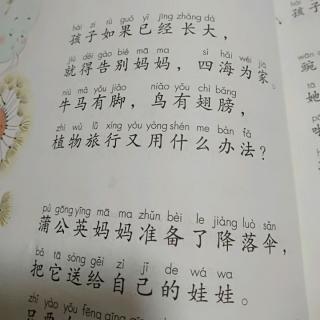 hái zi rú guǒ yǐ jīng zhǎng dà
孩子如果已经长大，
jiù děi gào bié mā ma sì hǎi wéi jiā
就得告别妈妈，四海为家。
niú mǎ yǒu jiǎo niǎo yǒu chì bǎng
牛马有脚，鸟有翅膀，
zhí wù lǚ xíng yòu yòng shén me bàn fǎ
植物旅行又用什么办法？
pú gōng yīng mā ma zhǔn bèi le jiàng luò sǎn
蒲公英妈妈准备了降落伞，
bǎ tā sòng gěi zì jǐ de wá wa
把它送给自己的娃娃。
zhǐ yào yǒu fēng